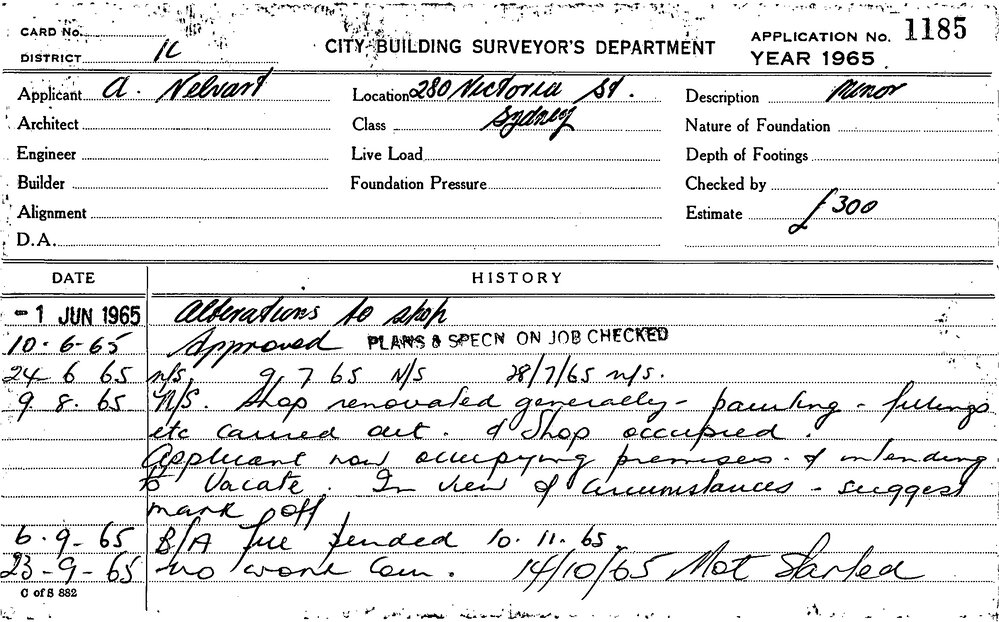 CARD No.
DISTRICT
CITY BUILDING SURVEYOR'S DEPARTMENT
APPLICATION No. 1185
YEAR 1965.
Applicant A. Nelvart
Location 280 Victoria St.
Description Minor
Architect
Class Sydney
Nature of Foundation
Engineer
Live Load
Depth of Footings
Builder
Foundation Pressure
Checked by
Alignment
Estimate £300
D.A.
DATE HISTORY
-1 JUN 1965 Alterations to shop
10-6-65 Approved PLANS & SPECN ON JOB CHECKED
24 6 65 n/s. 9 7 65 N/S 28/7/65 n/s.
9. 8. 65 N/S. Shop renovated generally - painting - fittings
etc carried out. & Shop occupied.
Applicant now occupying premises & intending
to vacate. In view of circumstances - suggest
mark off
6-9-65 B/A 10.11.65.
23-9-65 no work Com. 14/10/65 Not Started
C of S 882